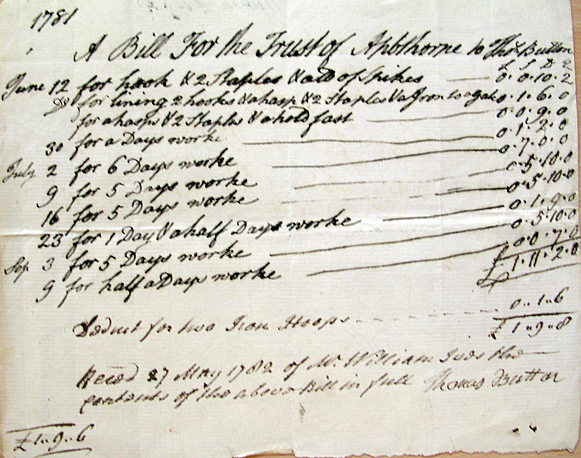 1781
" A Bill For the Trust of Apthorne to Thos Button
£ S D 2
June 12 for hook & 2 Staples & a tb of spikes 0.0.10.2
Do for tining 2 hooks & a hasp & 2 Staples & a Iron to a gate 0.1.6.0
for a hasps & 2 Staples & a holdfast 0.0.9.0
30 for a Days worke 0.1.2.0
July 2 for 6 Days worke 0.7.0.0
9 for 5 Days worke 0.5.10.0
16 for 5 Days worke 0.5.10.0
23 for 1 Day & a half Days worke 0.1.9.0
Sep 3 for 5 Days worke 0.5.10.0
9 for half a Days worke 0.0.7.0
£ 1.11.2.0
Deduct for two Iron Hoops 0..1..6
£ 1..9..8
Recd 27 May 1782 of Mr. William Ives the
contents of the above Bill in full Thomas Button
£1..9..6